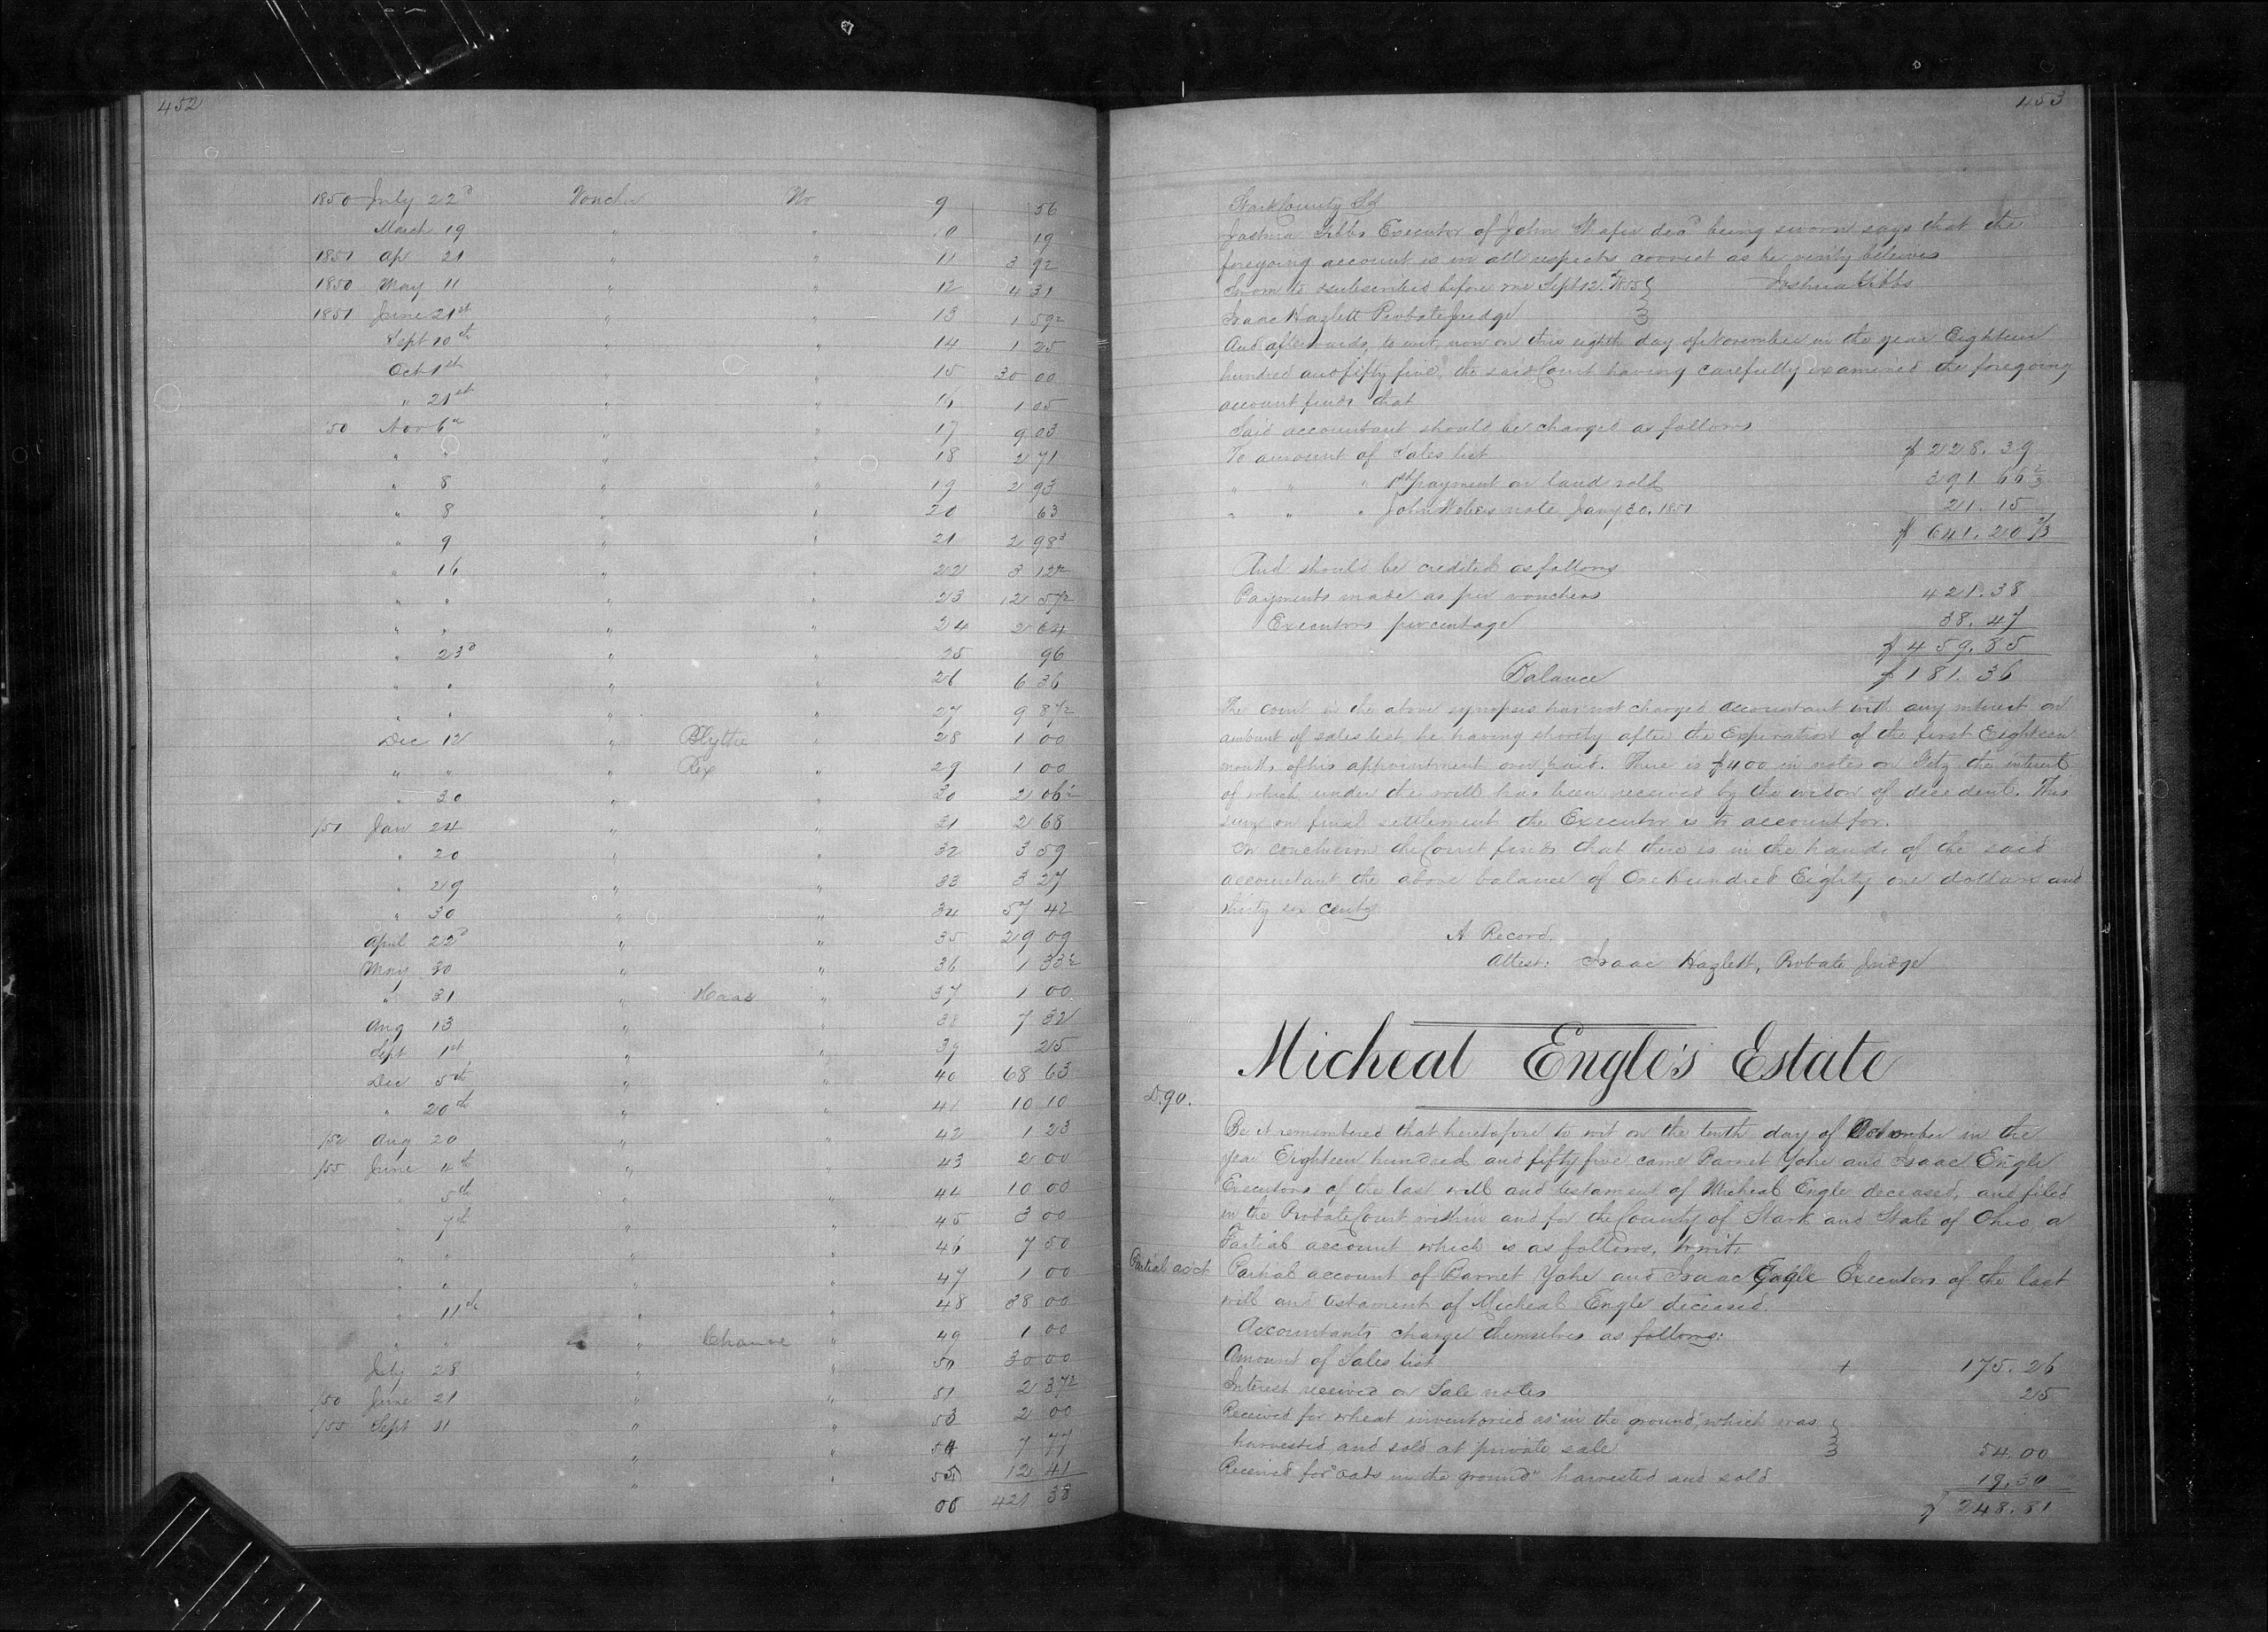 452
1850 July 22d Voucher No 9 56
March 19 " " 10 19
1851 Ap 21 " " 11 3 92
1850 May 11 " " 12 4 31
1851 June 21st " " 13 1 59 2
Sept 10th " " 14 1 25
Oct 1st " " 15 30 00
" 21st " " 16 1 05
'50 Nov 6th " " 17 9 03
" " " " 18 2 71
" 8 " " 19 2 93
" 8 " " 20 63
" 9 " " 21 2 98 3
" 16 " " 22 3 12 2
" " " " 23 12 57 2
" " " " 24 2 64
" 23d " " 25 96
" " " " 26 6 36
" " " " 27 9 87 2
Dec 12 " Blythe " 28 1 00
" " " Rex " 29 1 00
" 30 " " 30 2 06 2
/51 Jan 24 " " 31 2 68
" 20 " " 32 3 59
" 29 " " 33 3 27
" 30 " " 34 57 42
April 22d " " 35 29 09
May 30 " " 36 1 33 2
" 31 " Haas " 37 1 00
Aug 13 " " 38 7 32
Sept 1st " " 39 25
Dec 5th " " 40 68 63
" 20th " " 41 10 10
/52 Aug 20 " " 42 1 23
/55 June 4th " " 43 2 00
" 5th " " 44 10 00
" 7th " " 45 3 00
" " " " 46 7 50
" " " " 47 1 00
" 11th " " 48 38 00
" " " " 49 1 00
July 28 " " 50 30 00
/50 June 21 " " 51 2 37 2
/55 Sept 11 " " 53 2 00
" " 54 7 77
" " 55 12 41
421 38
453
Stark County Sd
Joshua Gibbs Executor of John Shafer decd being sworn says that the
foregoing account is in all respects correct as he verily believes
Sworn to & subscribed before me Sept 12th 1855 } Joshua Gibbs
Isaac Hazlett Probate Judge }
And afterwards, to wit, now on this eighth day of November in the year Eighteen
hundred and fifty five, the said Court having carefully examined the foregoing
account finds that
Said accountant should be charged as follows
To amount of Sales list $228.39
" " " 1st payment on land sold 391.66 2/3
" " " John note Jany 30. 1851 21.15
$641.20 2/3
And should be credited as follows
Payments made as per vouchers 421.38
Executors percentage 38.47
$459.85
Balance $181.36
The court in the above synopsis has not charged accountant with any interest on
amount of sales list he having shortly after the Expiration of the first Eighteen
months of his appointment over paid. There is $400 in notes on Fetz the interest
of which under the will has been received by the widow of decedent. This
sum on final settlement the Executor is to account for.
In conclusion the Court finds that there is in the hands of the said
accountant the above balance of One hundred Eighty one dollars and
thirty six cents
A Record.
Attest: Isaac Hazlett, Probate Judge
Micheal Engle's Estate
D.90.
Be it remembered that heretofore to wit on the tenth day of in the
year Eighteen hundred and fifty five came Barnet Yohe and Isaac Engle
Executors of the last will and testament of Micheal Engle deceased, and filed
in the Probate Court within and for the County of Stark and State of Ohio a
Partial account which is as follows, to wit:
Partial acct Partial account of Barnet Yohe and Isaac Engle Executors of the last
will and testament of Micheal Engle deceased.
Accountants charge themselves as follows:
Amount of Sales list + 175.26
Interest received on Sale notes 25
Received for wheat inventoried as "in the ground", which was }
harvested, and sold at private sale } 54.00
Received for "oats in the ground" harvested and sold 19.30
$ 248.81